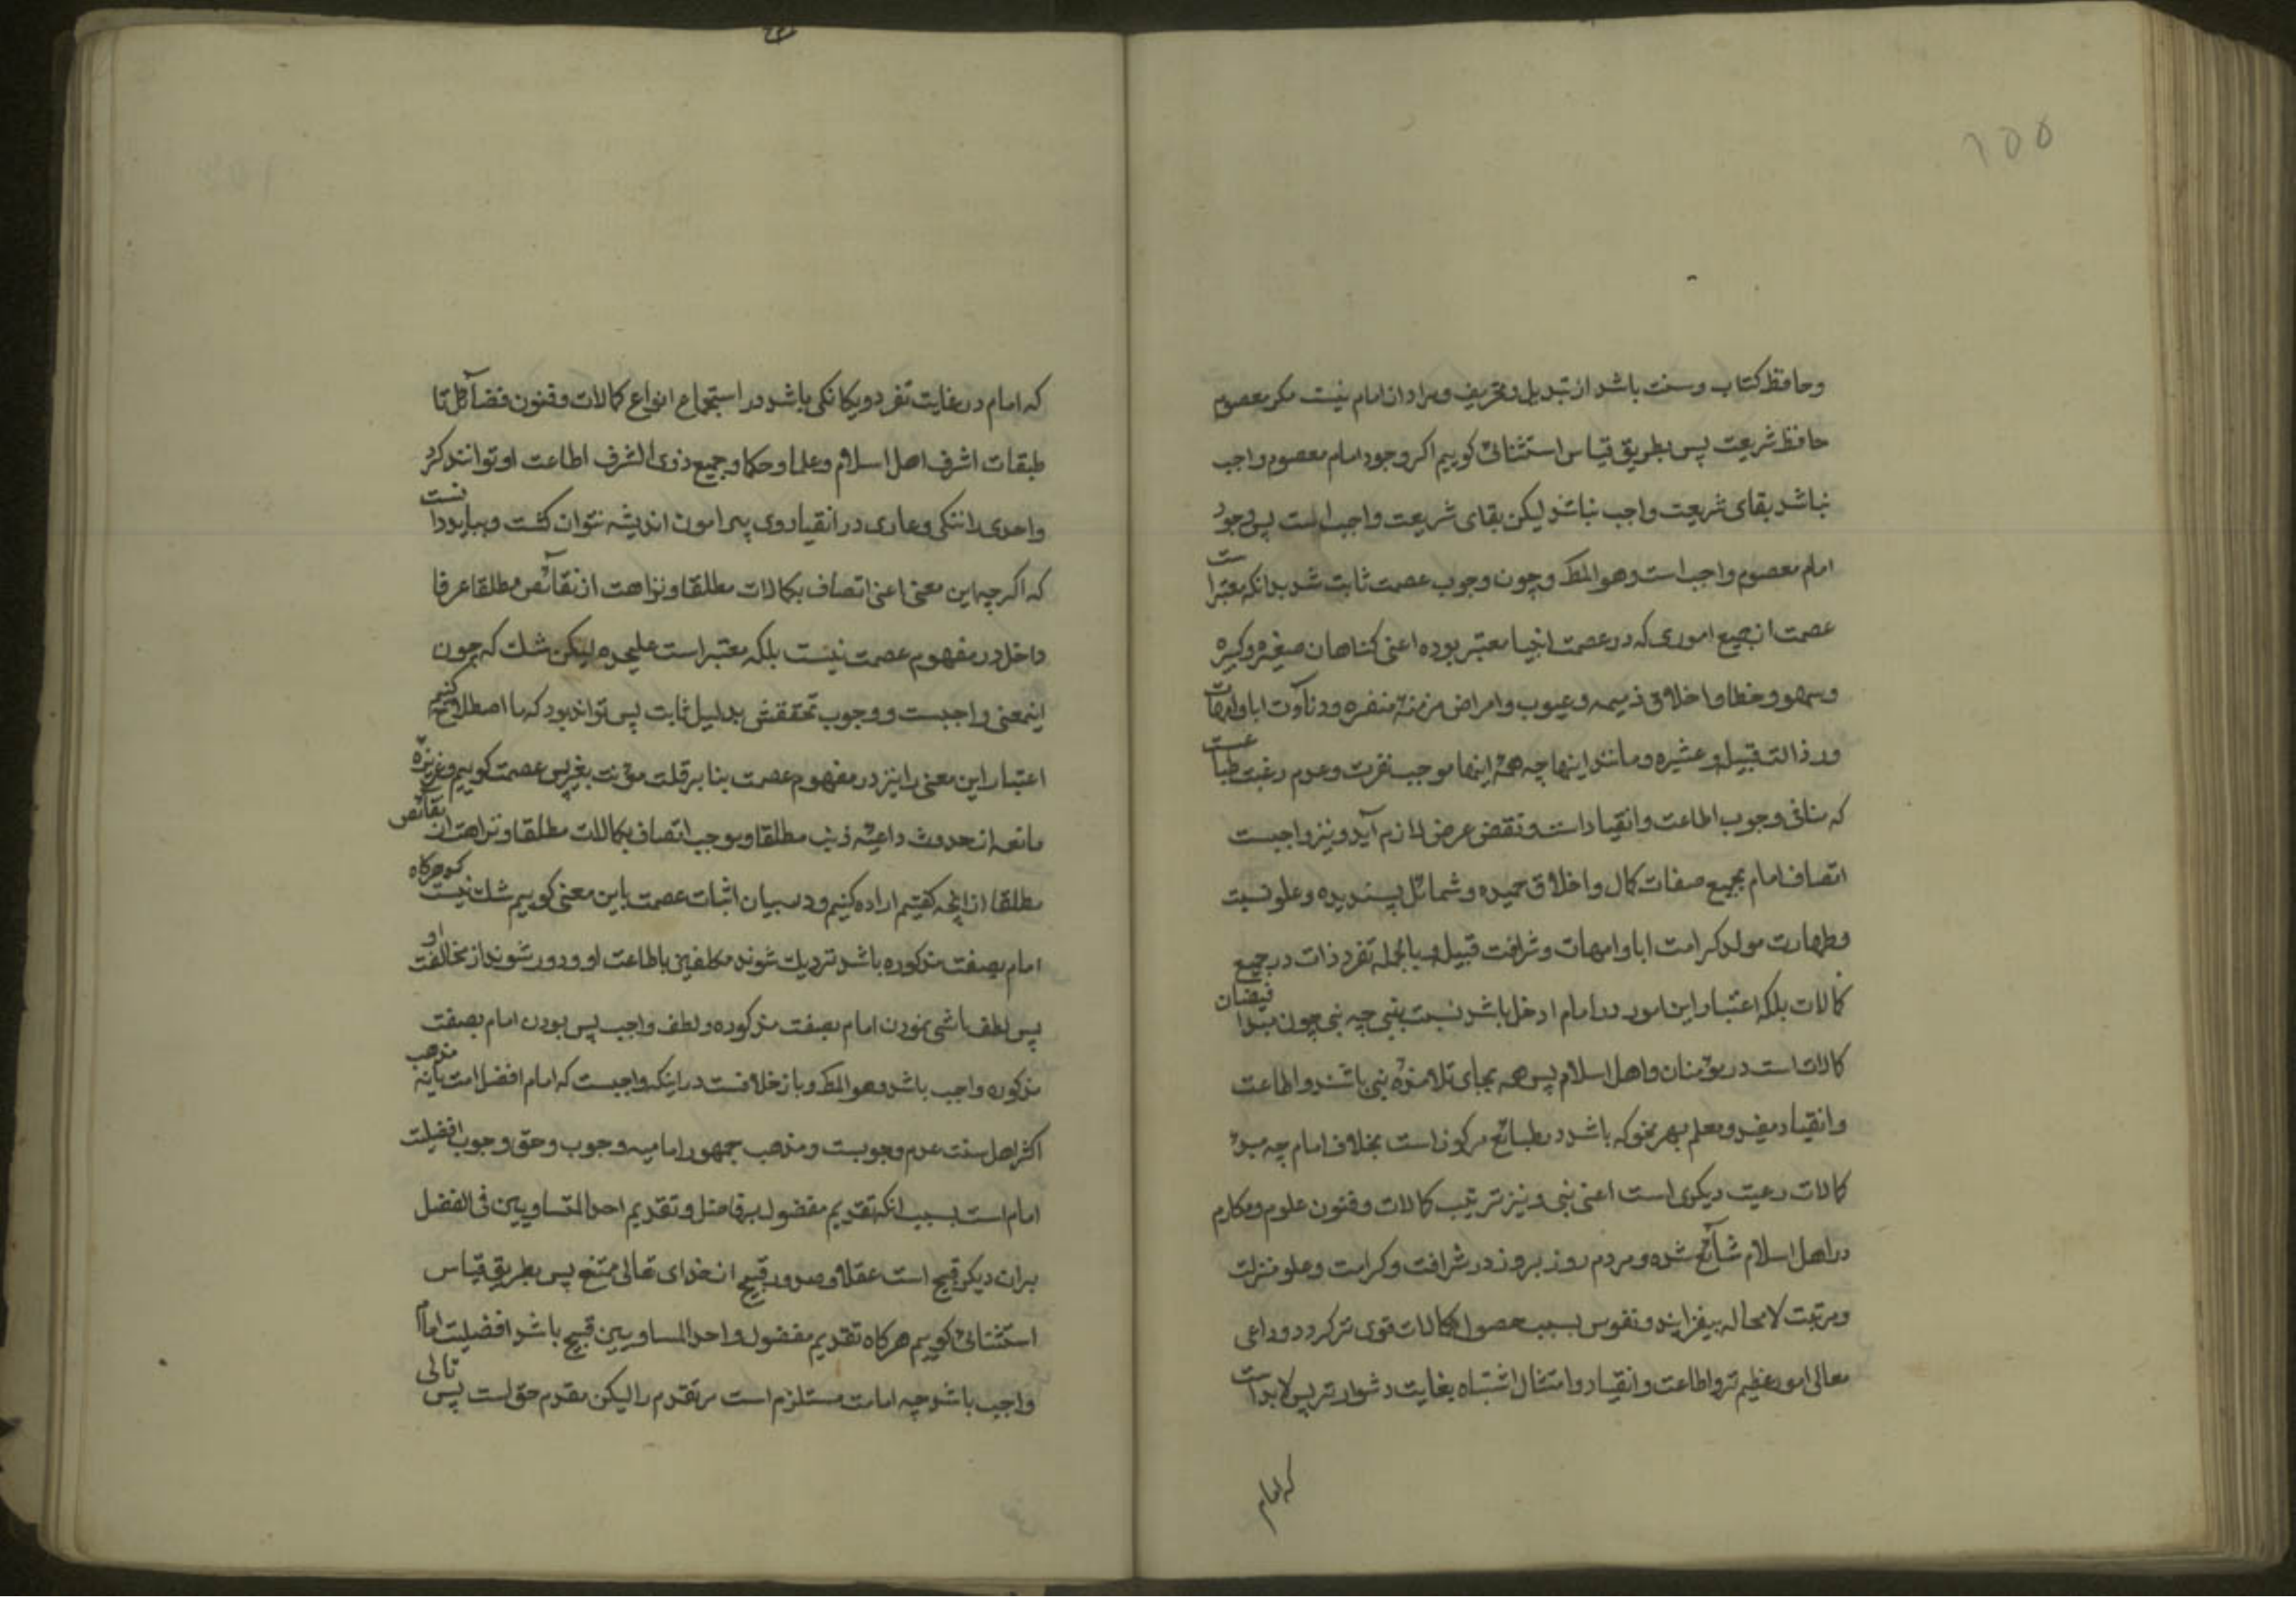 ۱۵۵
وحافظ کتاب وسنت باشد از تبدیل وتحریف ومراد از امام نیست مکر معصوم
حافظ شریعت پس بطریق قیاس استثنائی کوییم اکر وجود امام معصوم واجب
نباشد بقای شریعت واجب نباشد لیکن بقای شریعت واجب است پس وجود
امام معصوم واجب است وهو المط وچون وجوب عصمت ثابت شد بدانکه معتبر است
عصمت از جمیع اموری که در عصمت انبیا معتبر بوده اعنی کناهان صغیره وکبیره
وسهو وخطا واخلاق ذمیمه وعیوب وامراض مزمنهٔ منفره ودنائت ابا وامهات
ورذالت قبیله وعشیره ومانند اینها چه همهٔ اینها موجب نفرت وعدم رغبت طباعست
که منافی وجوب اطاعت وانقیاد است ونقض غرض لازم آید ونیز واجبست
اتصاف امام بجمیع صفات کمال واخلاق حمیده وشمائل پسندیده وعلو نسبت
وطهارت مولد کرامت ابا وامهات وشرافت قبیله وبالجمله تفرد ذات در جمیع
کمالات بلکه اعتبار این امور در امام ادخل باشد نسبت بنبی چه نبی چون مبدا فیضان
کمالات است در مؤمنان واهل اسلام پس همه بجای تلامذهٔ نبی باشند واطاعت
وانقیاد مفید ومعلم بهر نحو که باشد در طبائع مرکوز است بخلاف امام چه مبدٔ
کمالات رعیت دیکری است اعنی نبی ونیز ترتیب کمالات وفنون علوم ومکارم
در اهل اسلام شائع شده ومردم روز بروز در شرافت وکرامت وعلو منزلت
ومرتبت لامحاله بیفزایند ونفوس بسبب حصول کمالات قوی تر کردد ودواعی
معالی امور عظیم تر واطاعت وانقیاد وامتثال اشتباه بغایت دشوارتر پس لابد است
که امام
که امام در غایت تفرد ویکانکی باشد در استجماع انواع کمالات وفنون فضائل تا
طبقات اشرف اهل اسلام وعلما وحکما وجمیع ذوی الشرف اطاعت او توانند کرد
واحدی را ننکی وعاری در انقیاد وی پیرامون اندیشه نتوان کشت وبباید دانست
که اکر چه این معنی اعنی اتصاف بکمالات مطلقا ونزاهت از نقائص مطلقا عرفا
داخل در مفهوم عصمت نیست بلکه معتبر است علیحده لیکن شک که چون
اینمعنی واجبست ووجوب تحققش بدلیل ثابت پس تواند بود که ما اصطلاح کنیم
اعتبار این معنی را نیز در مفهوم عصمت بنا بر قلت مؤنت بغیر پس عصمت کوییم وغریزهٔ
مانعه از حدوث داعیهٔ ذنب مطلقا وموجب اتصاف بکمالات مطلقا ونزاهت از نقائص
مطلقا از آنچه کفتیم اراده کنیم ودر بیان اثبات عصمت باین معنی کوییم شک نیست که هرکاه
امام بصفت مذکوره باشد نزدیک شوند مکلفین باطاعت او ودور شوند از مخالفت او
پس لطف باشد بودن امام بصفت مذکوره ولطف واجب پس بودن امام بصفت
مذکوره واجب باشد وهو المط وباز خلافست در اینکه واجبست که امام افضل امت یا نه مذهب
اکثر اهل سنت عدم وجوبست ومذهب جمهور امامیه وجوب وحق وجوب افضلیت
امام است بسبب انکه تقدیم مفضول بر فاضل وتقدیم احد المتساویین فی الفضل
بران دیکر قبیح است عقلا وصدور قبیح از خدای تعالی ممتنع پس بطریق قیاس
استثنائی کوییم هرکاه تقدیم مفضول واحد المساویین قبیح باشد افضلیت امام
واجب باشد چه امامت مستلزم است مر تقدم را لیکن مقدم حق است پس تالی